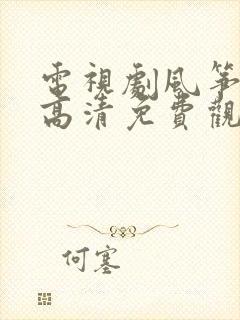 電視劇風箏
高清免費觀
何塞